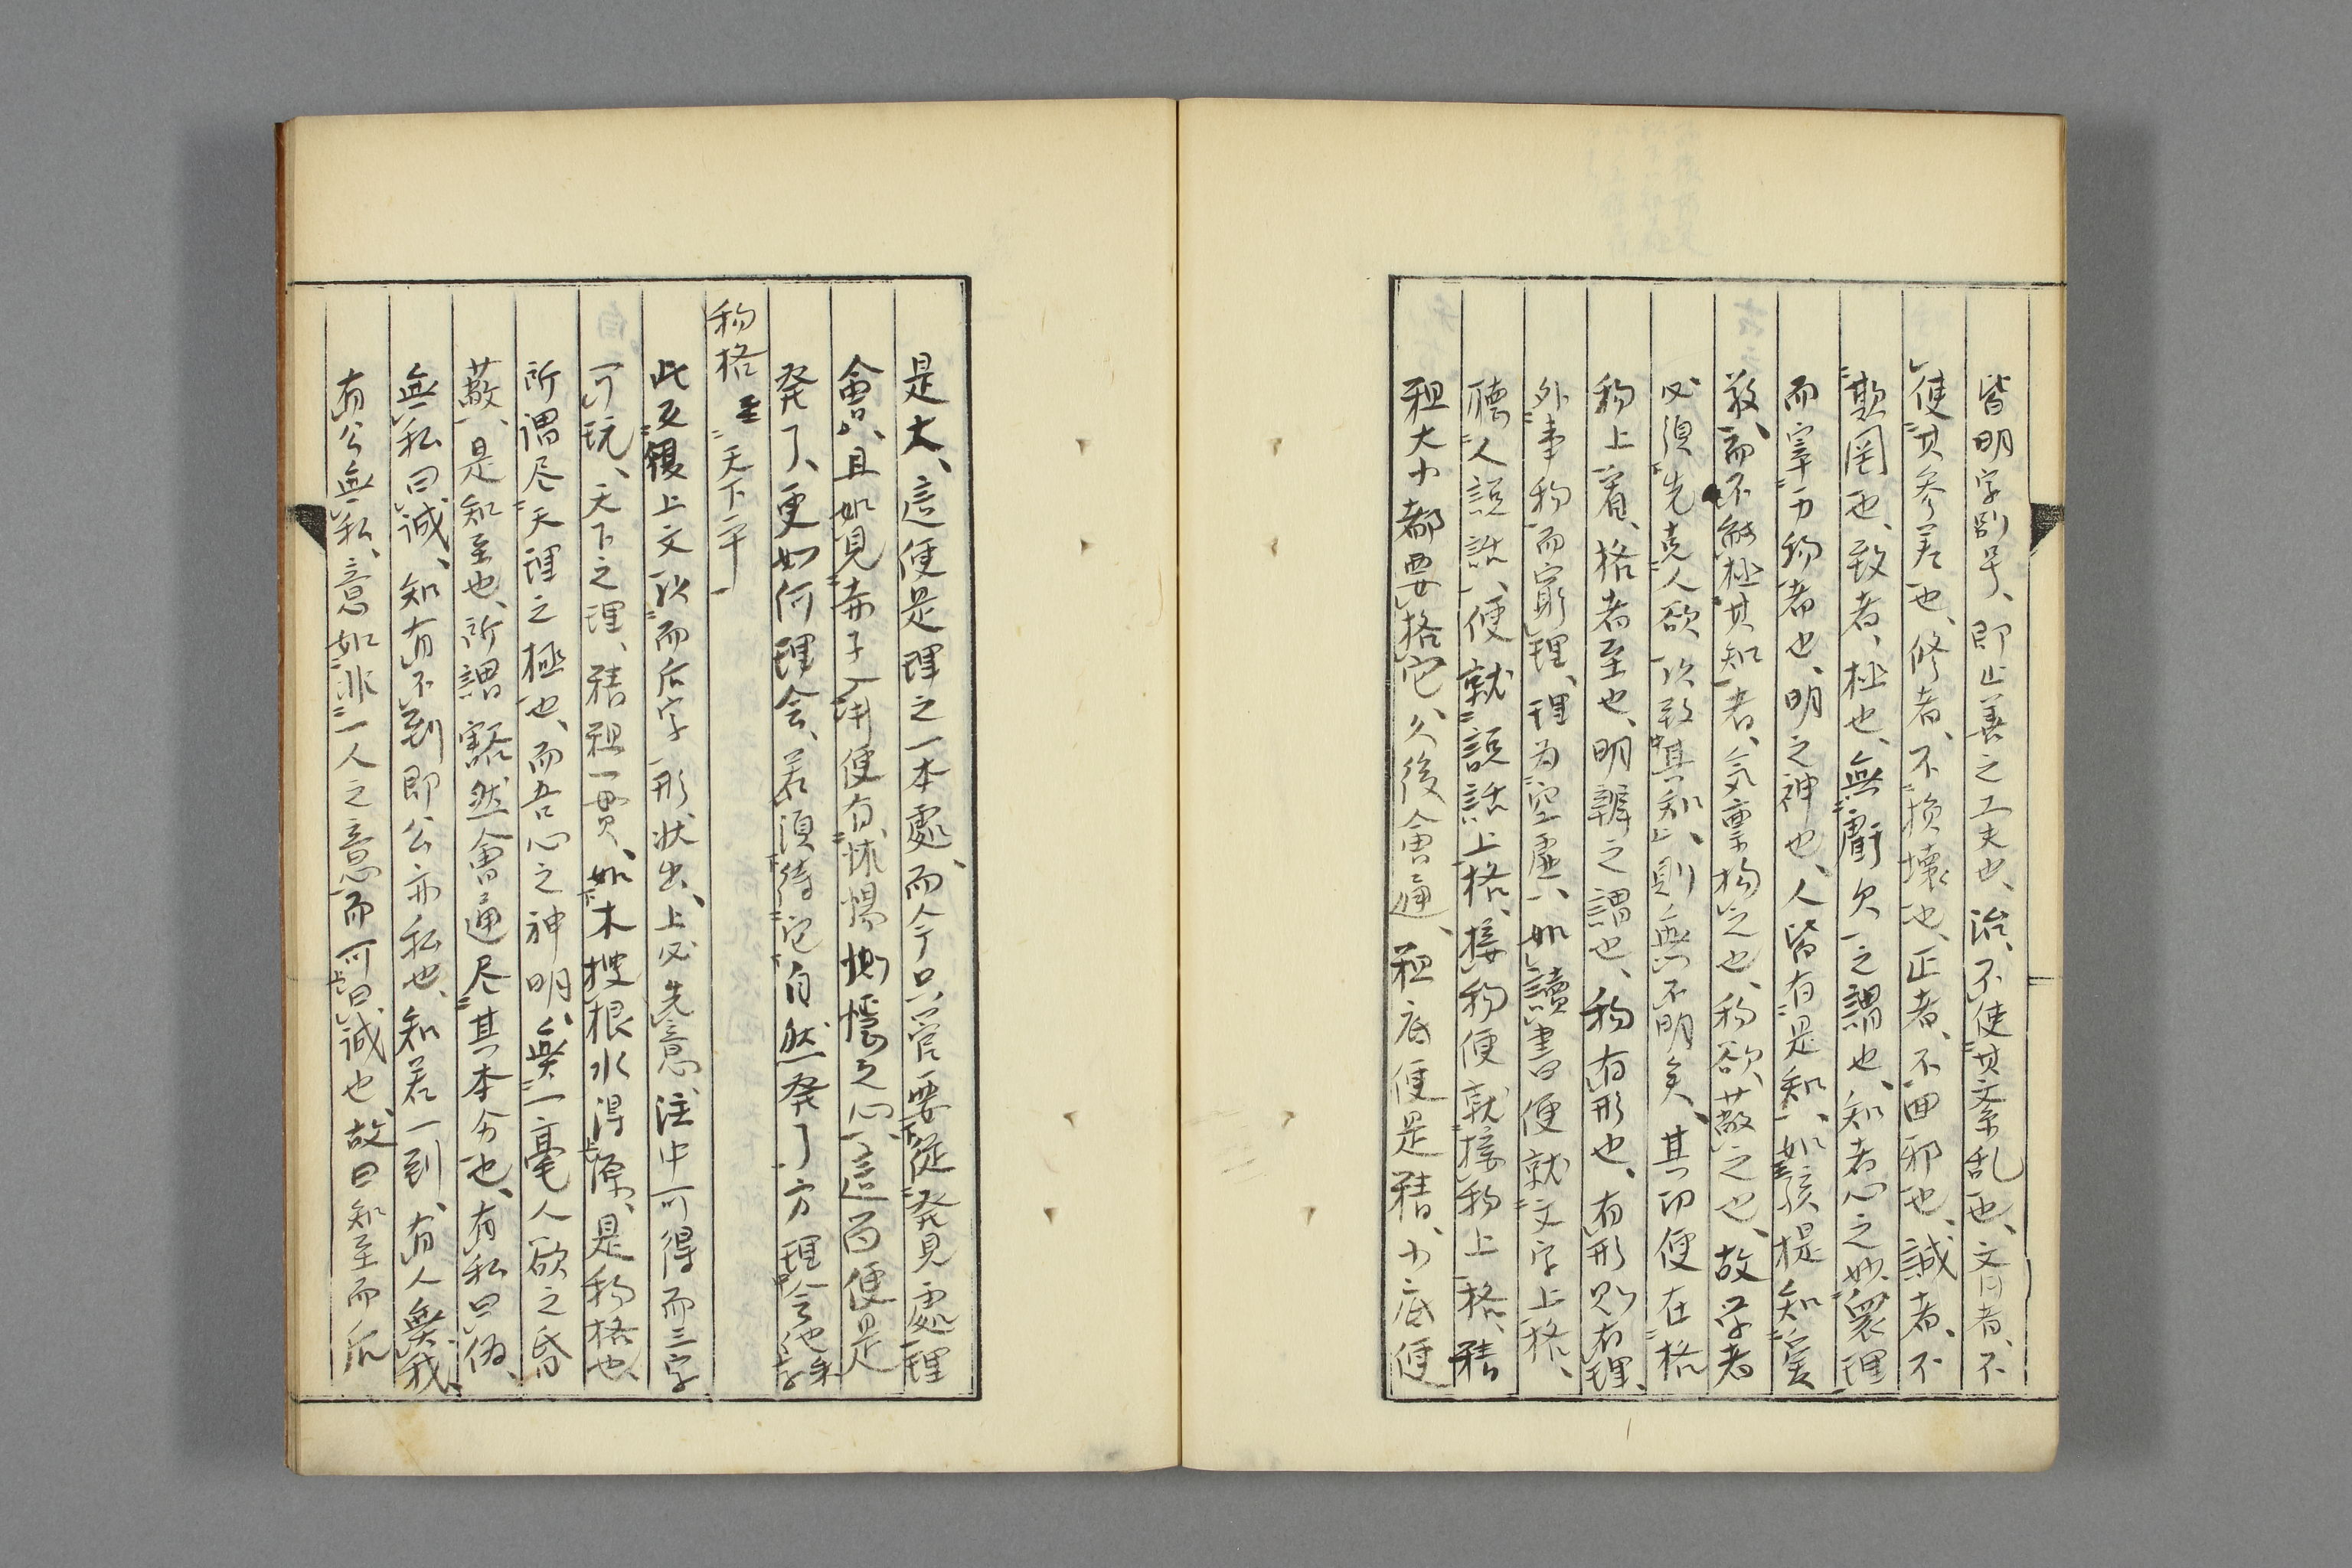 皆明字別号、即止善之工夫也、治、不使其紊乱也、斉者、不
使其参差也、修者、不損壊也、正者、不回邪也、誠者、不
欺罔也、致者、極也、無虧欠之謂也、知者心之妙、衆理
而宰万物者也、明之神也、人皆有是知、如孩提知
敬、而不能極其知者、気稟拘之也、物欲蔽之也、故学者
必須先克人欲以致其知、則無不明矣、其功便在格
物上着、格者至也、明辨之謂也、物有形也、有形則有理、
外事物而窮理、理為空虚、如讀書便就文字上格、
聴人説話、便就説話上格、接物便就接物上格、精
粗大小都要格它、久後會通、粗底便是精、小底便
是大、這便是理之一本處、而今只管要從発見處理
會、且如見赤子入井便有怵惕惻隠之心、這箇便是
発了、更如何理会、若須待它自然発了方理会他
物格至天下平
此反覆上文以而后字形状出、上必先意注中可得而三字
可玩、天下之理、精粗一貫、如木捜根水得源、是物格也、
所謂尽天理之極也、而吾心之神明、無一毫人欲之昏
蔽、是知至也、所謂豁然會通尽其本分也、有私曰偽、
無私曰誠、知有不到即公亦私也、知若一到、有人無我、
有公無私、意如非一人之意而可曰誠也、故曰知至而后